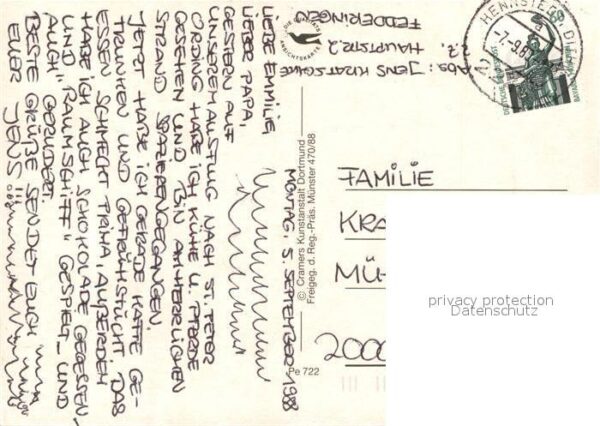 MONTAG, 5. SEPTEMBER 1988
LIEBE FAMILIE,
LIEBER PAPA,
GESTERN AUF
UNSEREM AUSFLUG NACH ST. PETER
ORDING HABE ICH KÜHE U. PFERDE
GESEHEN UND BIN AM HERRLICHEN
STRAND SPAZIERENGEGANGEN.
JETZT HABE ICH GERADE KAFFE GE-
TRUNKEN UND GEFRÜHSTÜCKT. DAS
ESSEN SCHMECKT PRIMA, AUßERDEM
HABE ICH AUCH SCHOKOLADE GEGESSEN,
UND "RAUMSCHIFF" GESPIELT UND
AUCH GERUDERT.
BESTE GRÜßE SENDET EUCH
EUER JENS !!
Abs: JENS
HAUPTSTR. 2
FEDDERINGEN
© Cramers Kunstanstalt Dortmund
Freigeg. d. Reg.-Präs. Münster 470/88
Pe 722
HENNSTEDT
-7.-9.8
60
DEUTSCHE BUNDESPOST
FAMILIE
KRA
MÜ
2000
privacy protection
Datenschutz